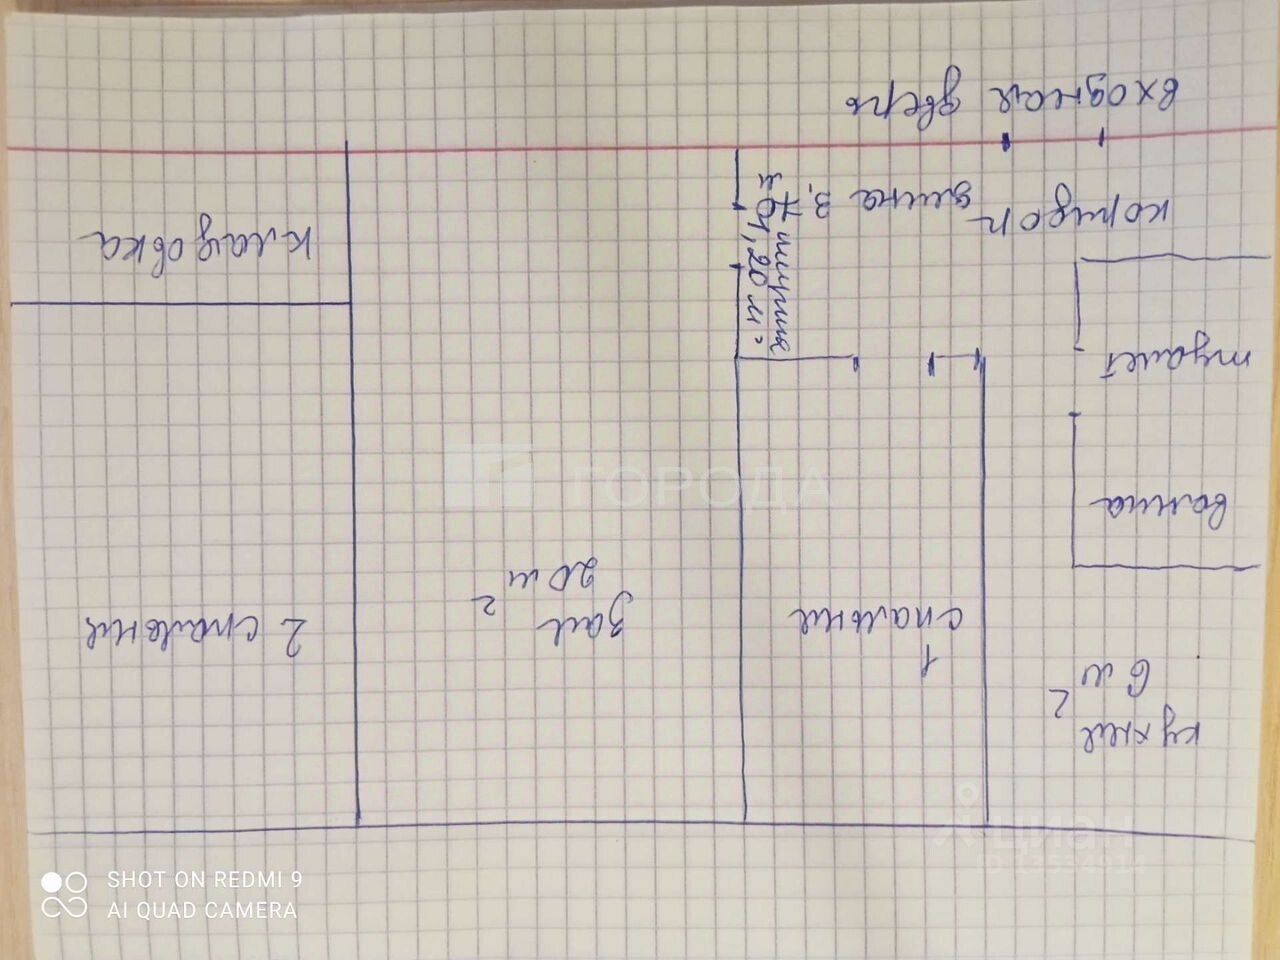 кухня
6 м²
1
спальня
зал
20 м²
2 спальня
ванна
туалет
коридор
длина 3,
ширина
1,20 м.
кладовка
входная дверь
ГОРОДА
циан
ID 13534914
SHOT ON REDMI 9
AI QUAD CAMERA